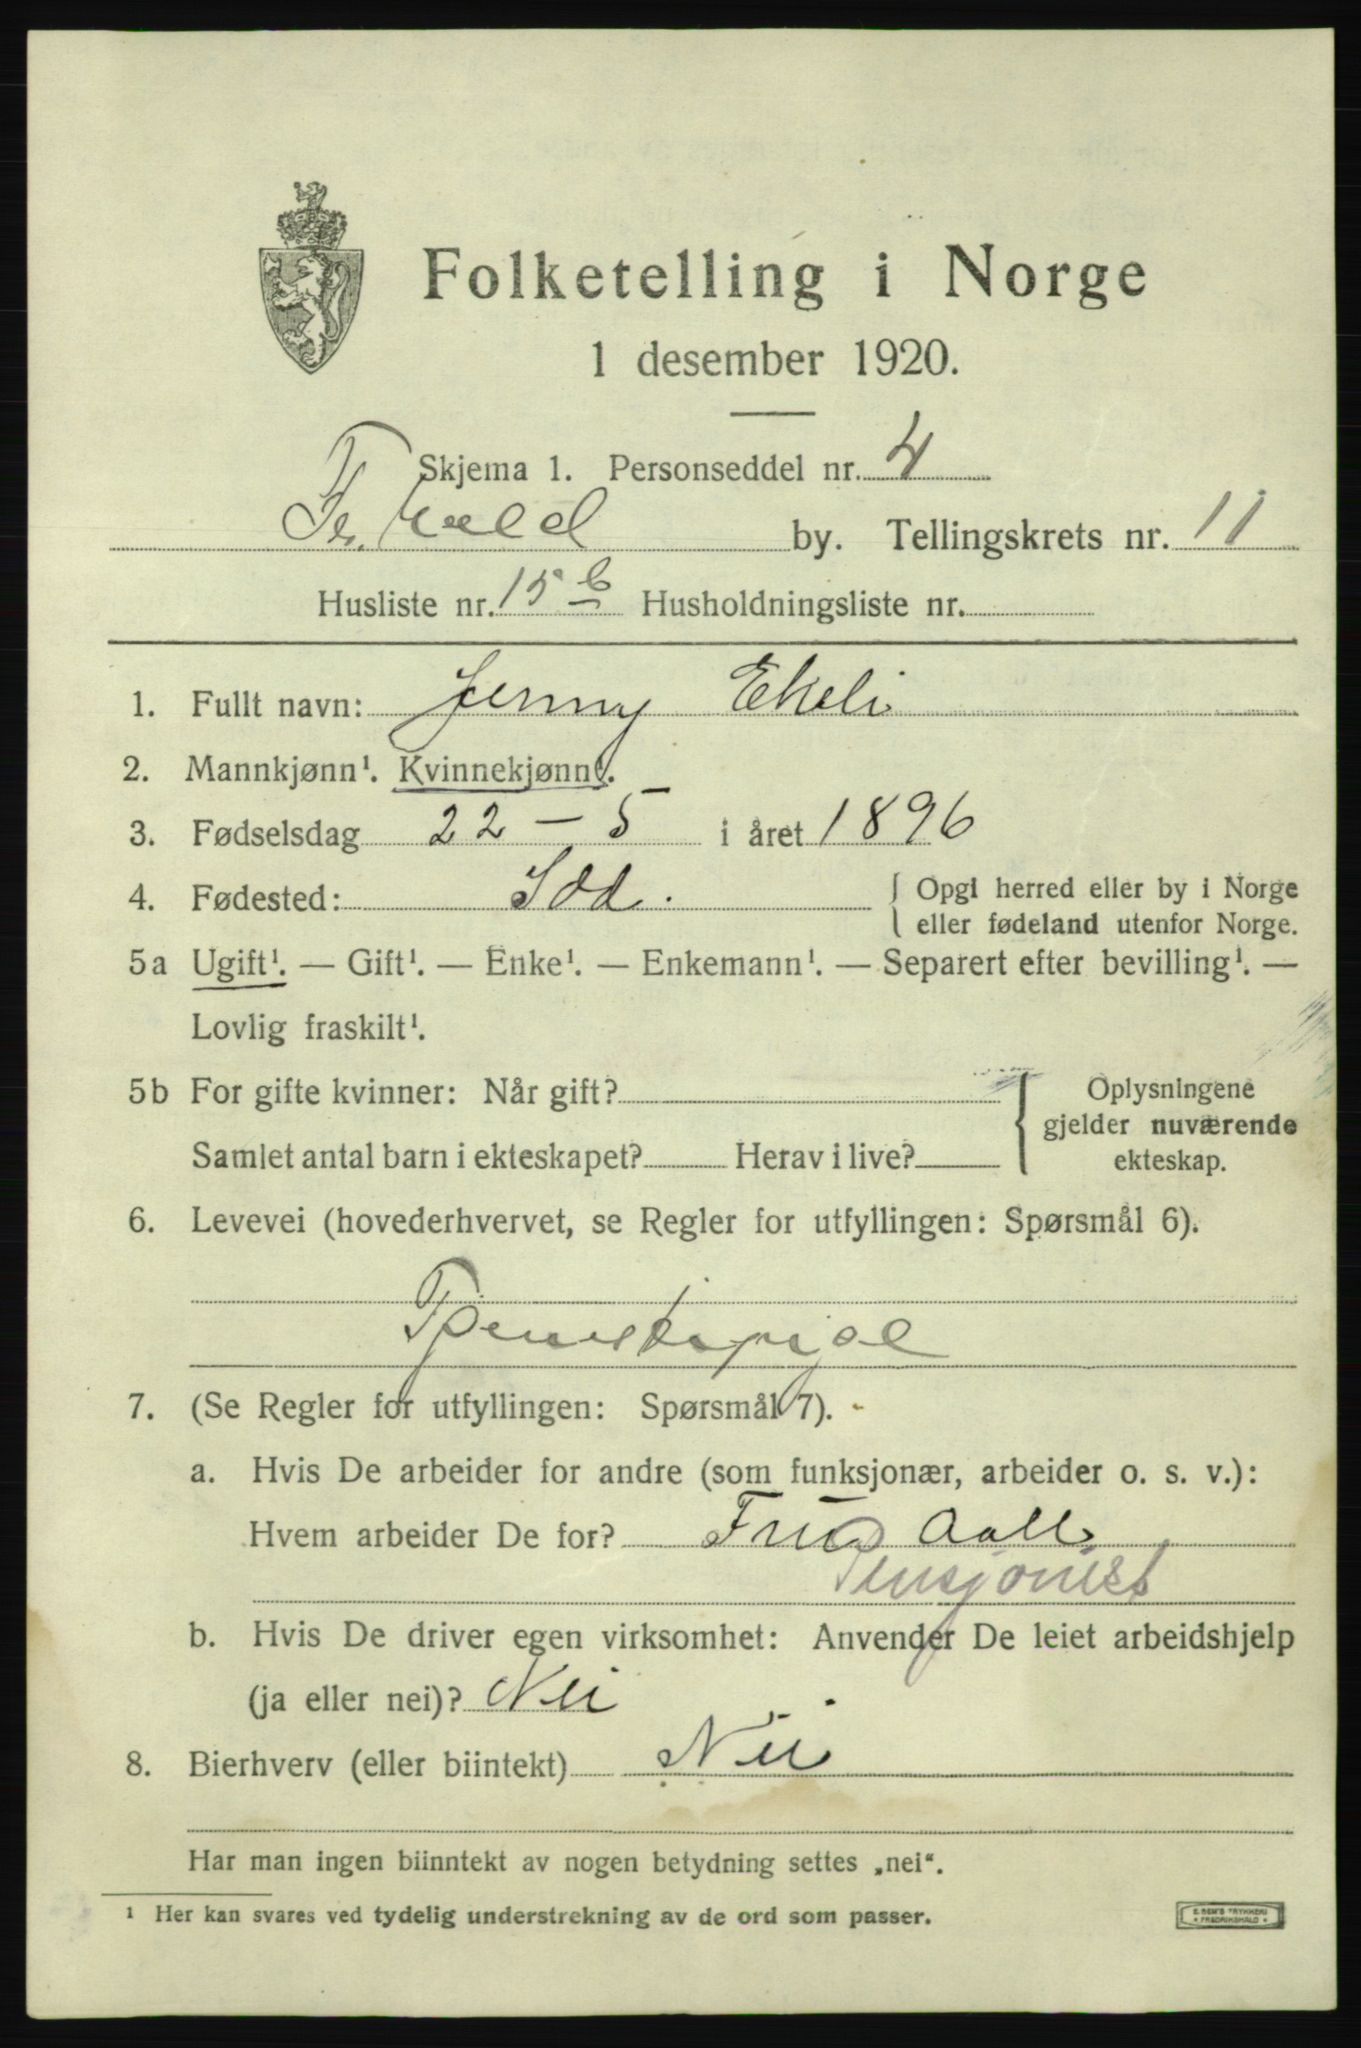 Folketelling i Norge
1 desember 1920.
Skjema 1. Personseddel nr. 4
Fr.hald by. Tellingskrets nr. 11
Husliste nr. 15 b Husholdningsliste nr.
1. Fullt navn: Jenny Ekeli
2. Mannkjønn¹. Kvinnekjønn¹.
3. Fødselsdag 22 – 5 i året 1896
4. Fødested: Idd. { Opgi herred eller by i Norge
eller fødeland utenfor Norge.
5a Ugift¹. — Gift¹. — Enke¹. — Enkemann¹. — Separert efter bevilling¹. —
Lovlig fraskilt¹.
5b For gifte kvinner: Når gift? Oplysningene
gjelder nuværende
Samlet antal barn i ekteskapet? Herav i live? ekteskap.
6. Levevei (hovederhvervet, se Regler for utfyllingen: Spørsmål 6).
Tjenestepige
7. (Se Regler for utfyllingen: Spørsmål 7).
a. Hvis De arbeider for andre (som funksjonær, arbeider o. s. v.):
Hvem arbeider De for? Frue Aall
Pensjonist
b. Hvis De driver egen virksomhet: Anvender De leiet arbeidshjelp
(ja eller nei)? Nei
8. Bierhverv (eller biintekt) Nei
Har man ingen biinntekt av nogen betydning settes „nei“.
¹ Her kan svares ved tydelig understrekning av de ord som passer.
E. SEM'S TRYKKERI
FREDRIKSHALD